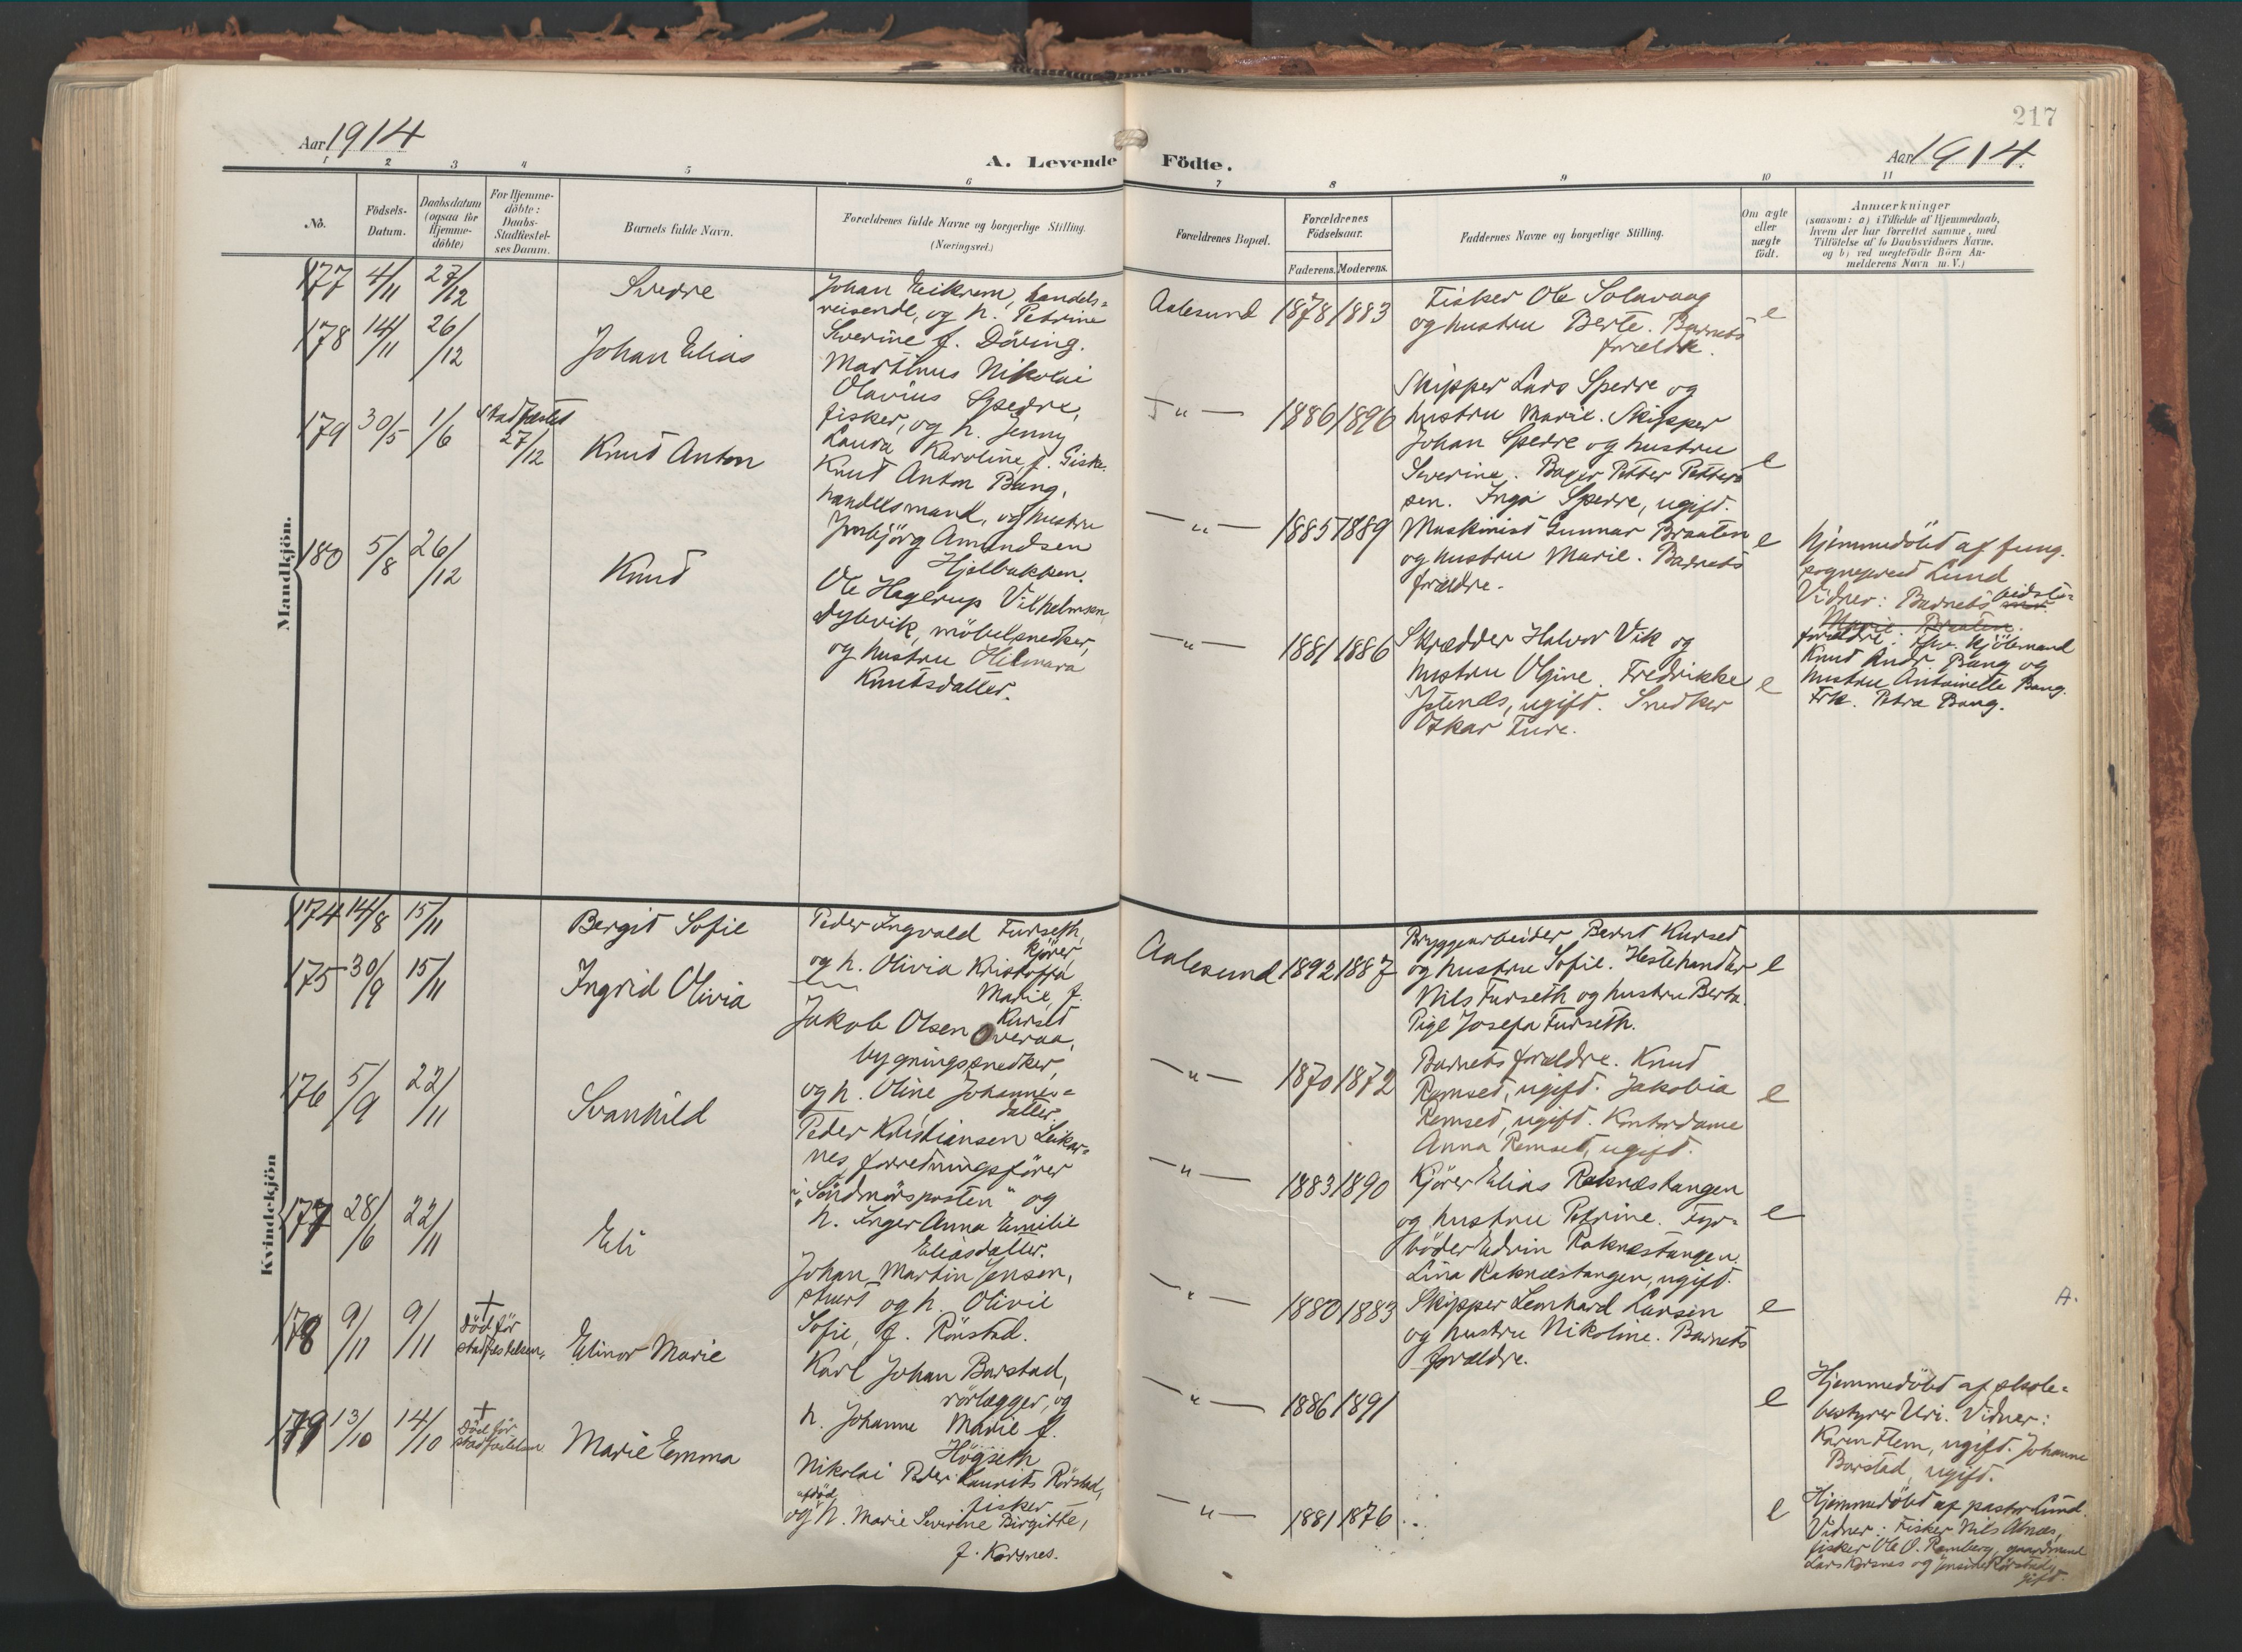 217
Aar 1914
A. Levende Födte.
Aar 1914.
1 2 3 4 5 6 7 8 9 10 11
No.
Födsels-
Datum.
Daabsdatum
(ogsaa for
Hjemme-
döbte)
For Hjemme-
döbte:
Daabs-
Stadfæstel-
ses Datum.
Barnets fulde Navn.
Forældrenes fulde Navne og borgerlige Stilling.
(Næringsvei.)
Forældrenes Bopæl.
Forældrenes
Födselsaar.
Faderens. Moderens.
Faddernes Navne og borgerlige Stilling.
Om ægte
eller
uægte
födt.
Anmærkninger
(saasom: a) i Tilfælde af Hjemmedaab,
hvem der har forrettet samme, med
Tilföielse af to Daabsvidners Navne.
og b) ved uegtefödte Börn An-
melderens Navn m. V.)
Mandkjön.
177 4/11 27/12 Sverre
Johan Eikrem, handels=
reisende, og h. Petrine
Severine f. Döving.
Aalesund 1878 1883
Fisker Ole Solavaag
og hustru Berte. Barnets
forældre.
e
178 14/11 26/12 Johan Elias
Martinus Nikolai
Olavius Sperre,
fisker, og h. Jenny
Laura Karoline f. Giske.
— " — 1886 1896
Skipper Lars Sperre og
hustru Marie. Skipper
Johan Sperre og hustru
Severine. Bager Petter Petter
sen. Inga Sperre, ugift.
e
179 30/5 1/6 stadfæstet 27/12 Knut Anton
Knut Anton Bang,
handelsmand, og hustru
Ingbjörg Amundsen
Hjelbakken.
— " — 1885 1889
Maskinist Gunnar Braaten
og hustru Marie. Barnets
forældre.
e
Hjemmedöbt af fung.
sogneprest Lund
Vidner: Barnets bedste=
Marie Braaten.
forældre: fhv. kjöbmand
Knut Andr. Bang og
hustru Antoinette Bang.
Frk. Petra Bang.
180 5/8 26/12 Knut
Ole Hagerup Vilhelmsen
Dybvik, möbelsnedker,
og hustru Hilmara
Knutsdatter.
— " — 1881 1886
Skrædder Halvor Vik og
hustru Olgine. Fredrikke
Istenæs, ugift. Snedker
Oskar Fure.
e
Kvindekjön
174 14/8 15/11 Bergit Sofie
Peder Ingvald Furseth,
kjörer,
og h. Olivia Kristoffa
Marie, f.
Kurset
Aalesund 1892 1887
Bryggearbeider Bernt Kurset
og hustru Sofie. Hestehandler
Nils Furseth og hustru Berta.
Pige Josefa Furseth.
e
175 30/9 15/11 Ingrid Olivia
Jakob Olsen Overaa,
bygningssnedker,
og h. Oline Johannes=
datter.
— " — 1870 1872
Barnets forældre. Knut
Remset, ugift. Jakobia
Remset, ugift. Kontordame
Anna Remset, ugift.
e
176 5/9 22/11 Svanhild
Peder Kristiansen Leikar=
nes, forretningsförer
i "Söndmörsposten" og
h. Inger Anna Emilie
Eliasdatter.
— " — 1883 1890
Kjörer Elias Raknæstangen
og hustru Petrine. Fyr=
böder Edvin Raknæstangen.
Lina Raknæstangen, ugift.
e
177 28/6 22/11 Eli
Johan Martin Jensen,
stuert og h. Olivie
Sofie, f. Rönstad.
— " — 1880 1883
Skipper Leonhard Larsen
og hustru Nikoline. Barnets
forældre.
e
A.
178 9/11 9/11 † död för stadfæstelsen. Elinor Marie
Karl Johan Barstad,
rörlægger, og
h. Johanne Marie f.
Högseth
— " — 1886 1891
e
Hjemmedöbt af skole=
bestyrer Uri. Vidner:
Karen Flem, ugift. Johanne
Barstad, ugift.
179 13/10 14/10 † död för stadfæstelsen Marie Emma
Nikolai Peder Laurits Rörstad,
afdöd fisker
og h. Marie Severine Birgitte,
f. Korsnes.
— " — 1881 1876
e
Hjemmedöbt af pastor Lund.
Vidner: Fisker Nils Alnæs,
fisker Ole O. Ramberg, gaardmand
Lars Korsnes og Rörstad,
gift.